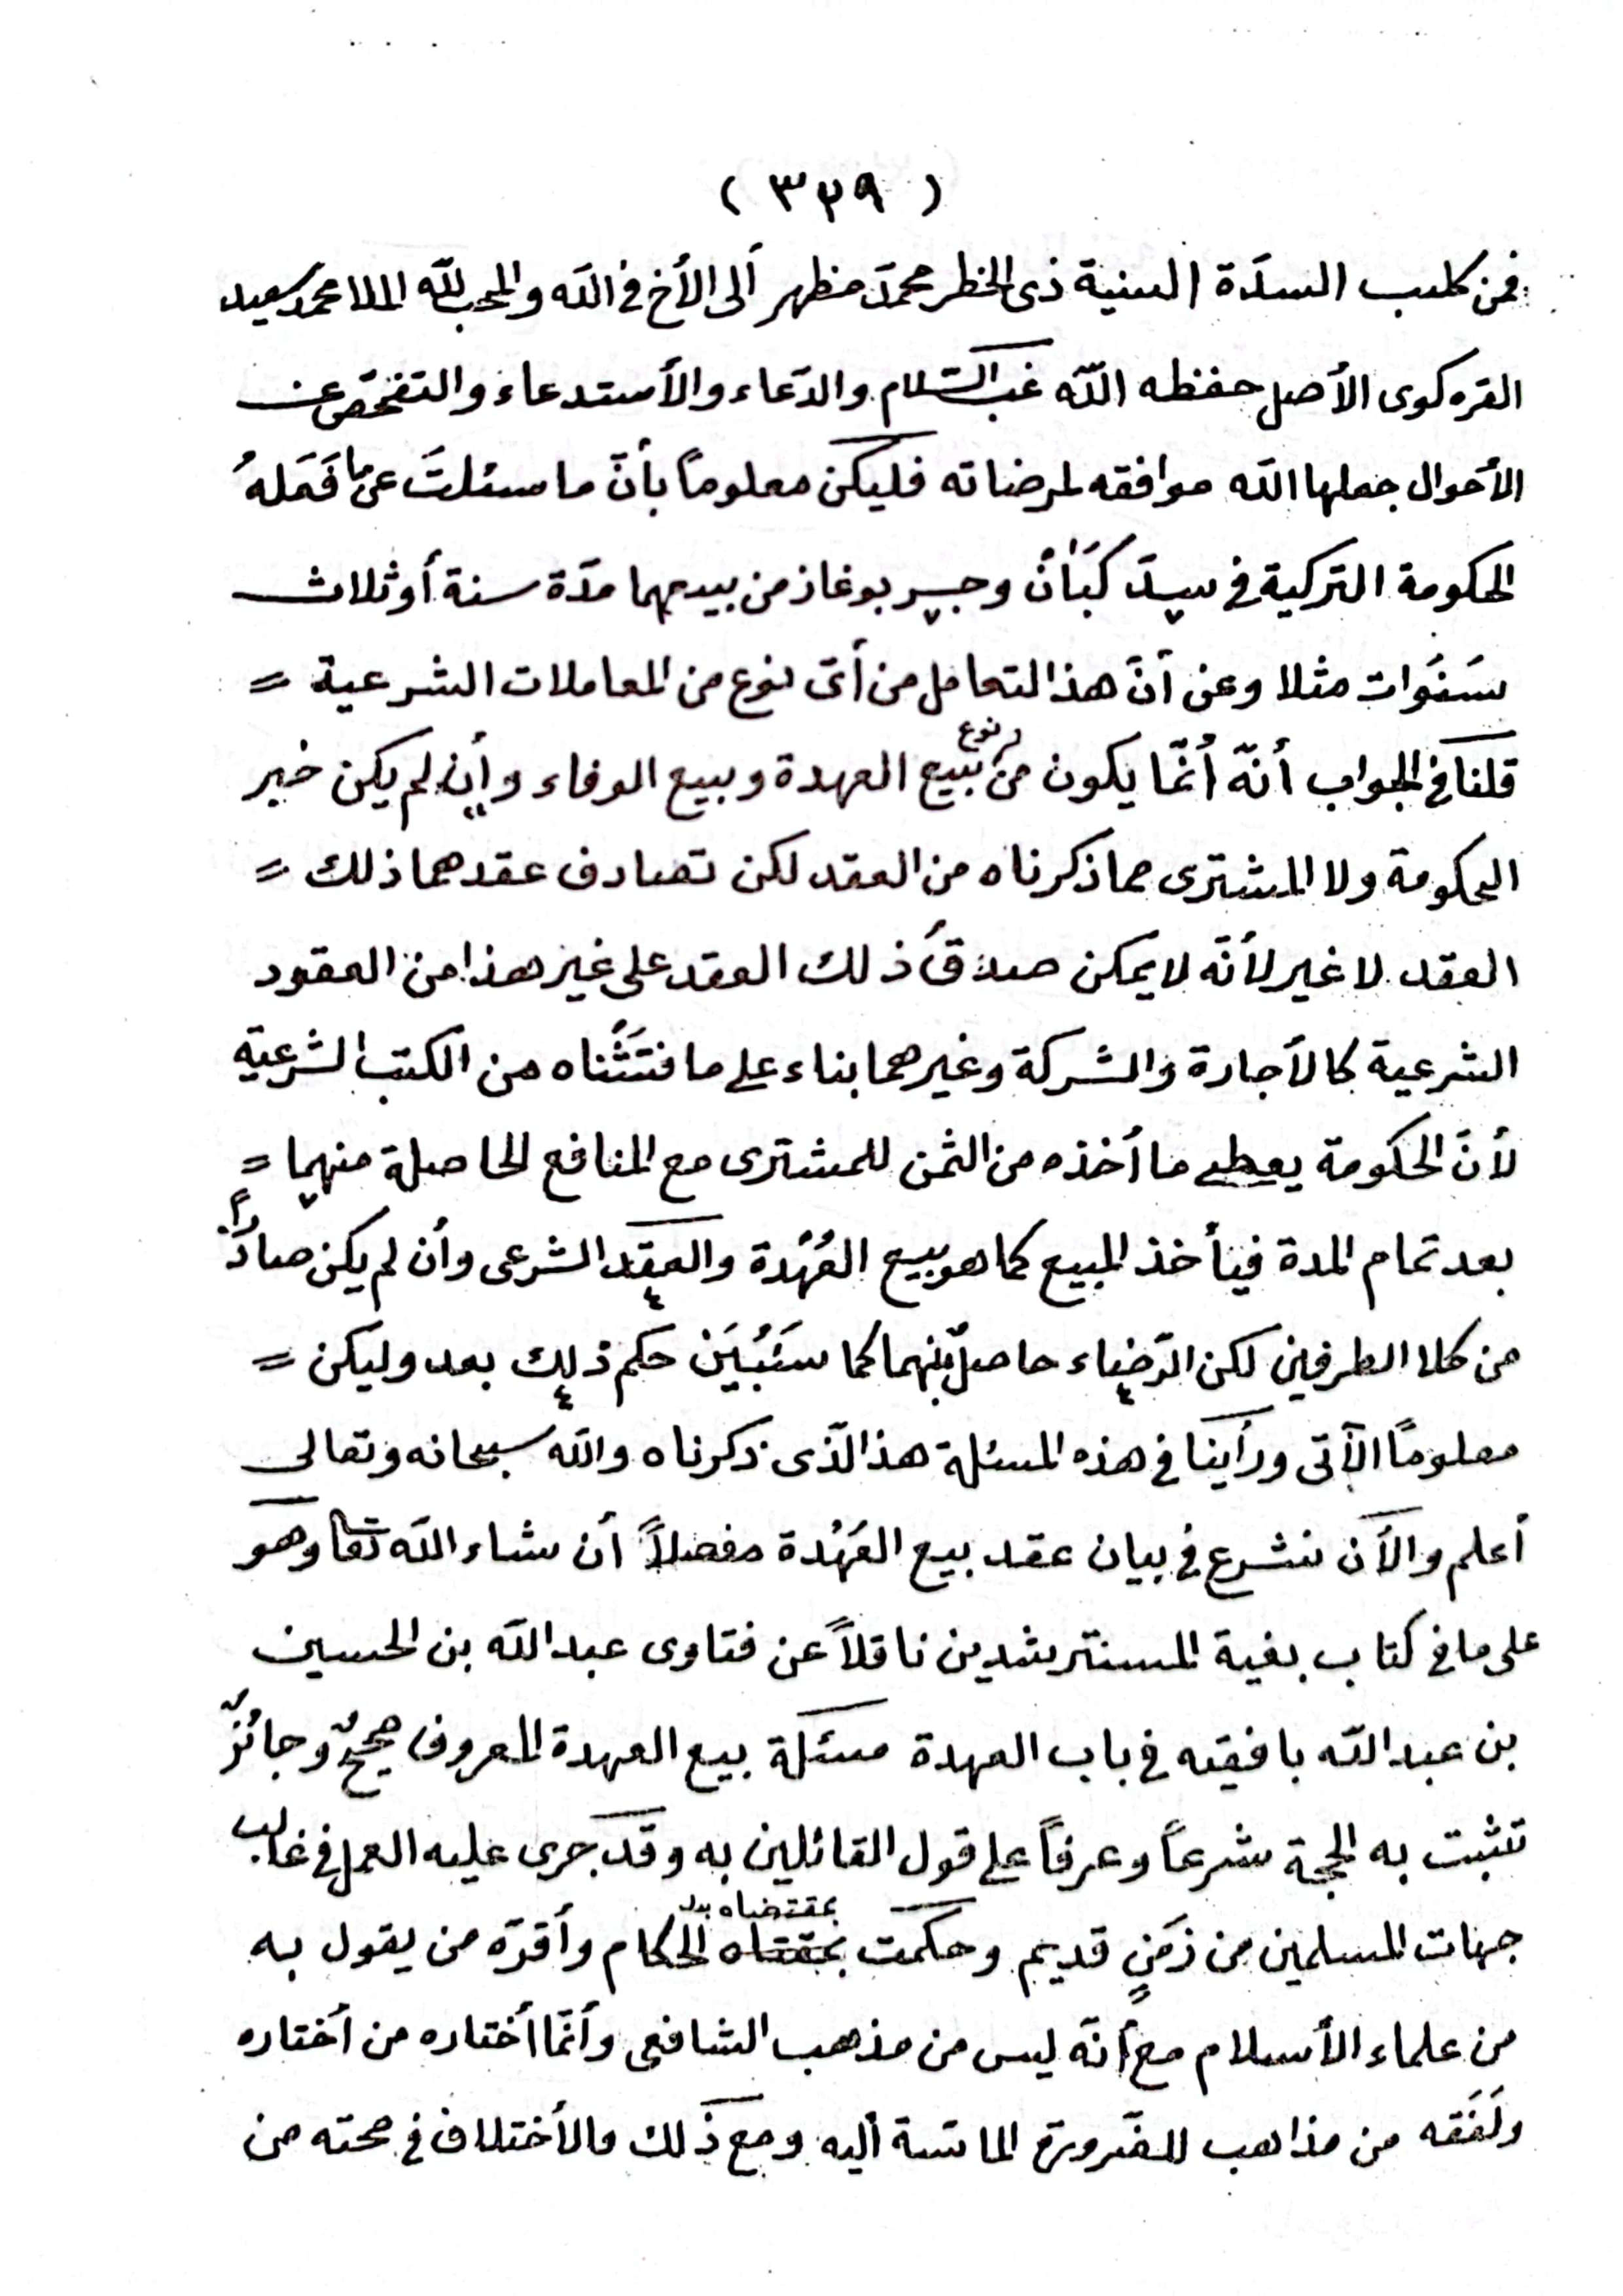 ( ٣٢٩ )
فمن كلب السدّة السنية ذى الخطر محمد مظهر ألى الأخ فى الله والمحب لله الملا محمد سعيد
القره كوى الأصل حفظه الله غب السّلام والدّعاء والأستدعاء والتفحّص عن
الأحوال جعلها الله موافقه لمرضاته فليكن معلوماً بأنّ ما سئلتَ عن ما فَمَلهُ
الحكومة التركية فى سپدَ كَبَانْ وجسر بوغاز من بيعهما مدّة سنة أو ثلاث
سَنَوات مثلا وعن أنّ هذ التعامل من أىّ نوع من المعاملات الشرعية =
قلنا فى الجواب أنّه أُنمّا يكون من نوع بيع العهدة وبيع الوفاء وأن لم يكن خبر
الحكومة ولا المشترى مما ذكرناه من العقد لكن تصادف عقدهما ذلك =
العقد لا غير لأنّه لا يمكن صدق ذلك العقد على غير هذا من العقود
الشرعية كالأجارة والشركة وغيرهما بناء على ما فتَشْناه من الكتب الشرعية
لأنّ الحكومة يعطى ما أخذه من الثمن للمشترى مع المنافع الحاصلة منهما =
بعد تمام المدة فيأخذ المبيع كما هو بيع العُهْدة والعقد الشرعى وأن لم يكن صادراً
من كلا الطرفين لكن الرّضاء حاصلٌ بينهما كما سَنُبَيّن حكم ذلك بعد وليكن =
معلومًا الآتى ورأينا فى هذه المسئلة هذ الّذى ذكرناه والله سبحانه وتعالى
أعلم والأن نشرع فى بيان عقد بيع العُهْدة مفصلاً أن شاء الله تعا وهو
على ما فى كتاب بغية المسترشدين ناقلاً عن فتاوى عبد الله بن الحسين
بن عبد الله بافقيه فى باب العهدة مسئلة بيع العهدة المعروف صحيحٌ وجائزٌ
تثبت به الحجة شرعاً وعرفاً على قول القائلين به وقد جرى عليه العمل فى غالب
جهات المسلمين من زمَنٍ قديم وحكمت بمقتضاه الحكام وأقرّه من يقول به
من علماء الأسلام مع أنّه ليس من مذهب الشافعى وأنمّا أختاره من أختاره
ولَفَقه من مذاهب للضّرورة الماسّة أليه ومع ذلك فالأختلاف فى صحته من